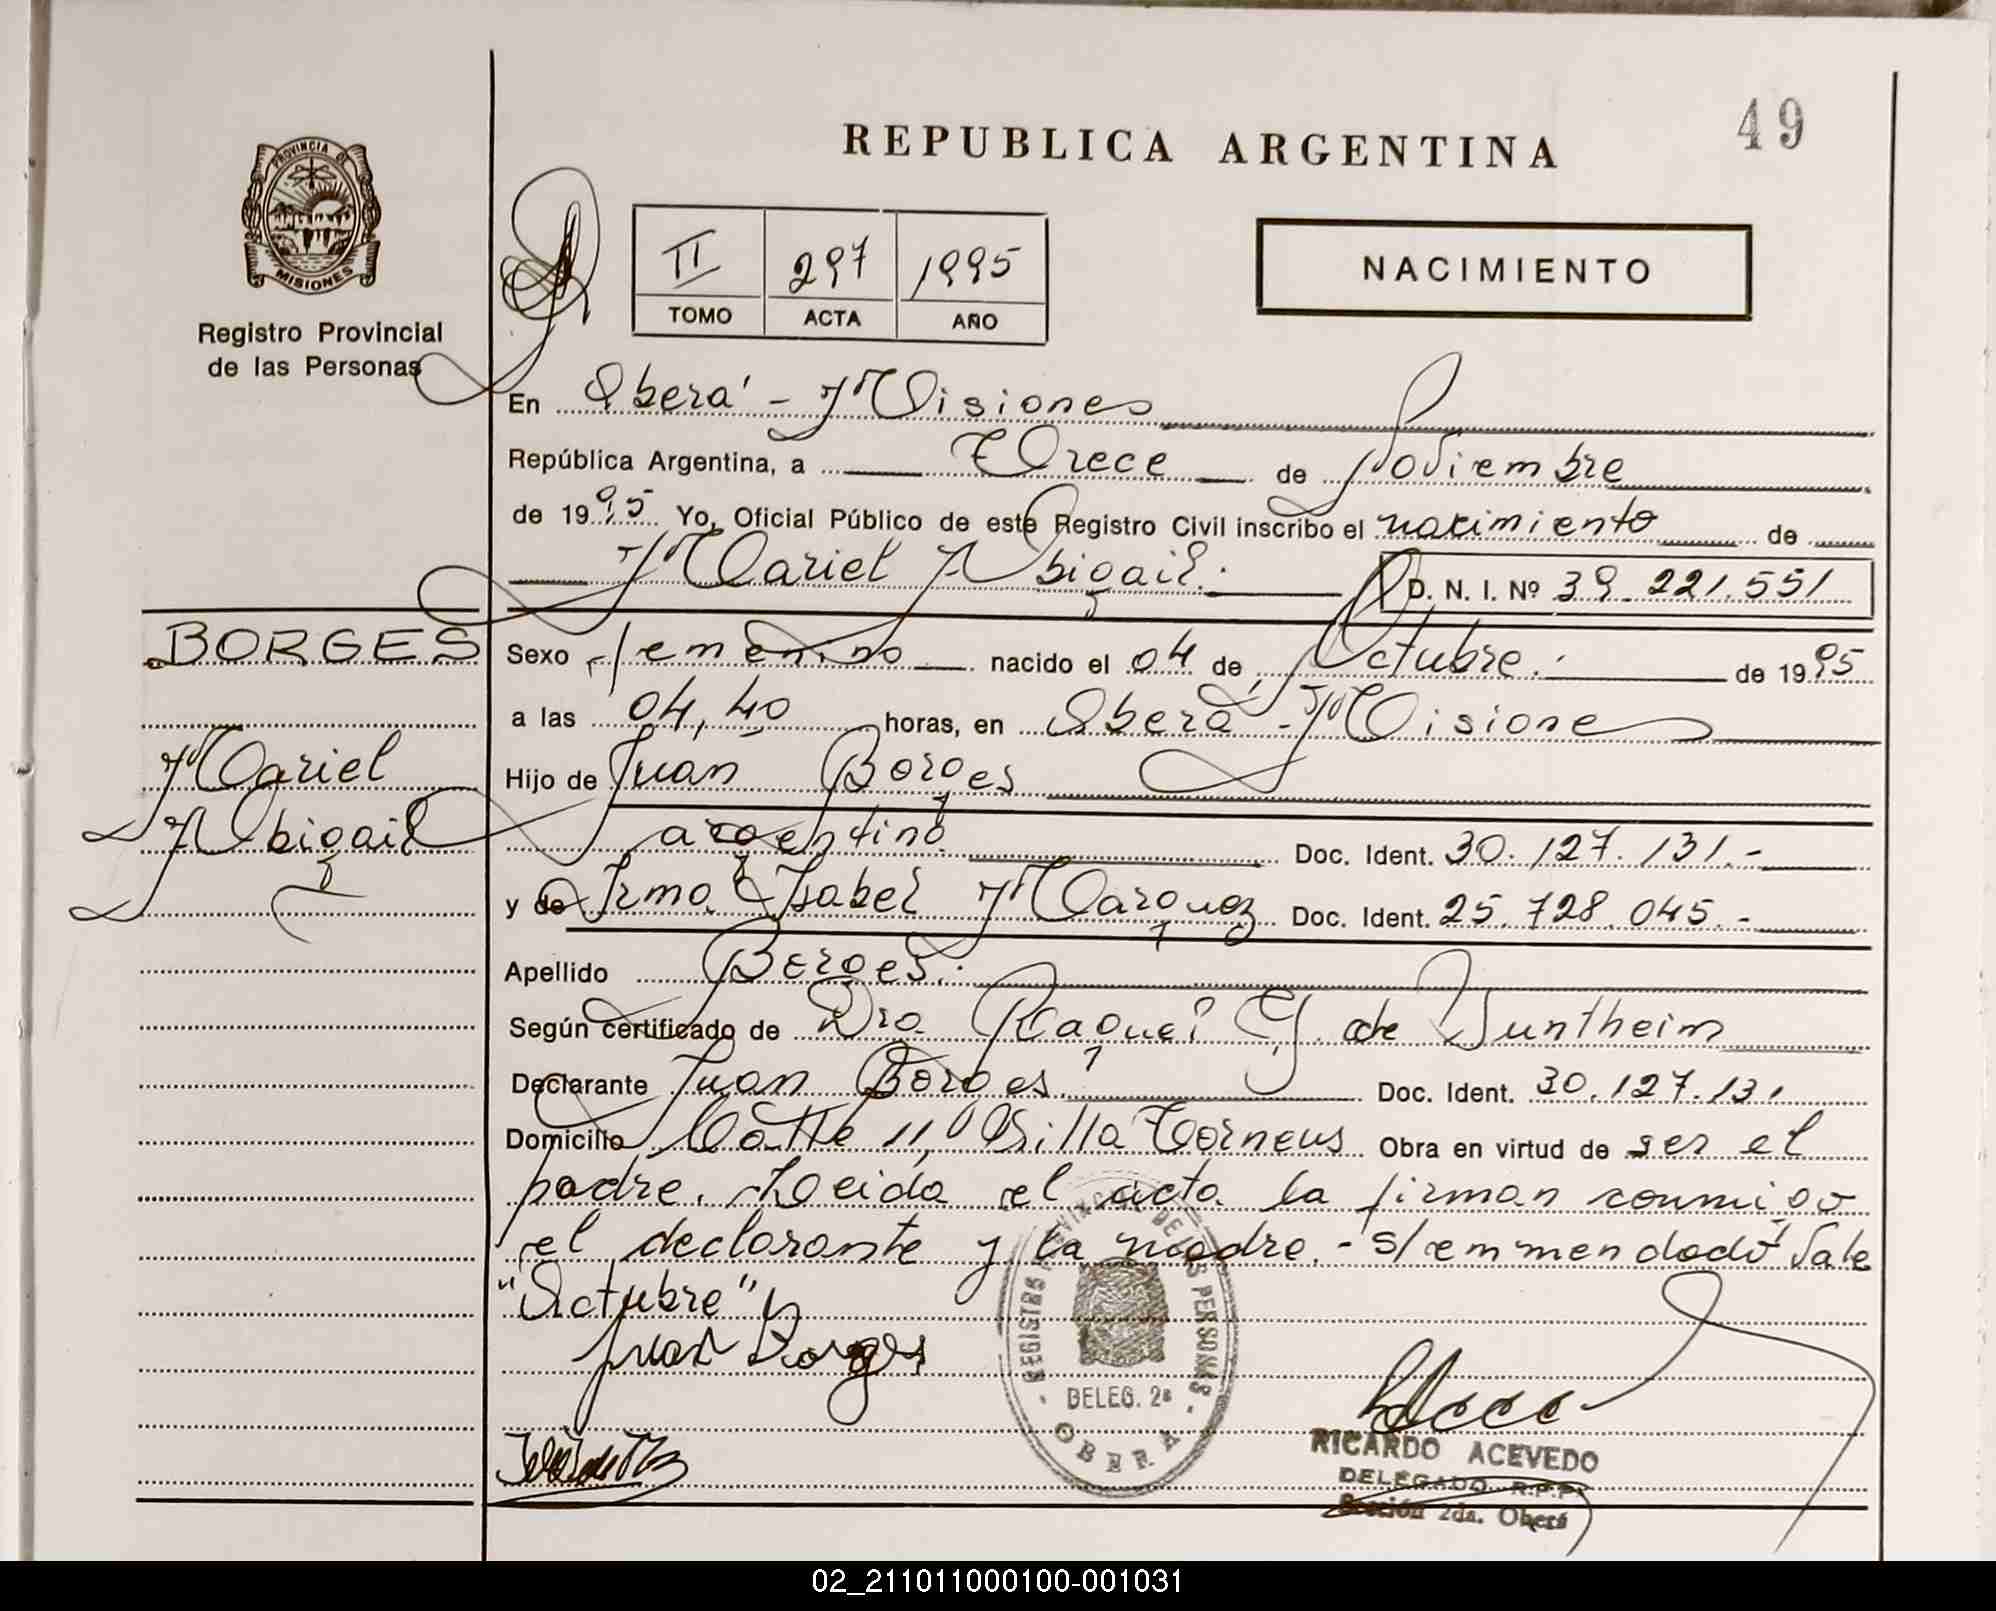 49
REPUBLICA ARGENTINA
PROVINCIA DE
MISIONES
Registro Provincial
de las Personas
II 297 1995
TOMO ACTA AÑO
NACIMIENTO
En Oberá - Misiones
República Argentina, a Trece de Noviembre
de 1995 Yo, Oficial Público de este Registro Civil inscribo el nacimiento de
Mariel Abigail.- D. N. I. Nº 39.221.551
BORGES
Mariel
Abigail
Sexo femenino nacido el 04 de Octubre.- de 1995
a las 04,40 horas, en Oberá - Misiones
Hijo de Juan Borges
argentino Doc. Ident. 30.127.131.-
y de Irma Isabel Marquez Doc. Ident. 25.728.045.-
Apellido Borges.-
Según certificado de Dra. Raquel G. de Wuntheim
Declarante Juan Borges.- Doc. Ident. 30.127.131
Domicilio Calle 11, Villa Torneus Obra en virtud de ser el
padre. Leida el acta la firman conmigo
el declarante y la madre.- S/emmendado Vale
"Octubre"
Juan Borges
REGISTRO PROVINCIAL DE LAS PERSONAS
DELEG. 2ª
OBERA
RICARDO ACEVEDO
DELEGADO R.P.P.
Sección 2da. Oberá
02_211011000100-001031